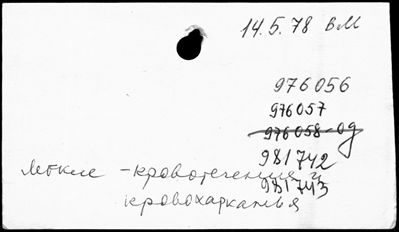 14.5.78 вм
976056
976057
976058-од
981742
легкие - кровотечения и
981743
кровохарканья